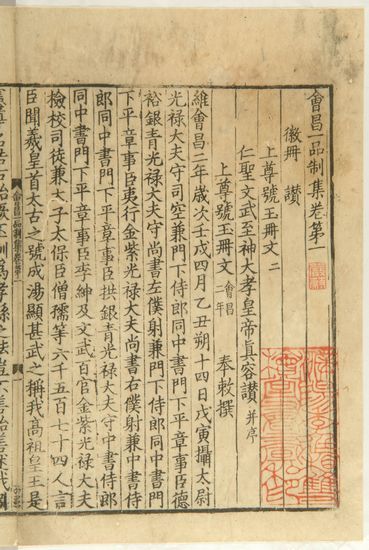 會昌一品制集卷第一
徽冊 讃
上尊號玉冊文二
仁聖文武至神大孝皇帝真容讃并序
上尊號玉冊文會昌二年 奉敕撰
維會昌二年歲次壬戌四月乙丑朔十四日戊寅攝太尉
光祿大夫守司空兼門下侍郎同中書門下平章事臣德
裕銀青光祿大夫守尚書左僕射兼門下侍郎同中書門
下平章事臣夷行金紫光祿大夫尚書右僕射兼中書侍
郎同中書門下平章事臣珙銀青光祿大夫守中書侍郎
同中書門下平章事臣李紳及文武百官金紫光祿大夫
檢校司徒兼太子太保臣僧孺等六千五百七十四人言
臣聞羲皇首太古之號成湯顯甚武之稱我高祖皇王是